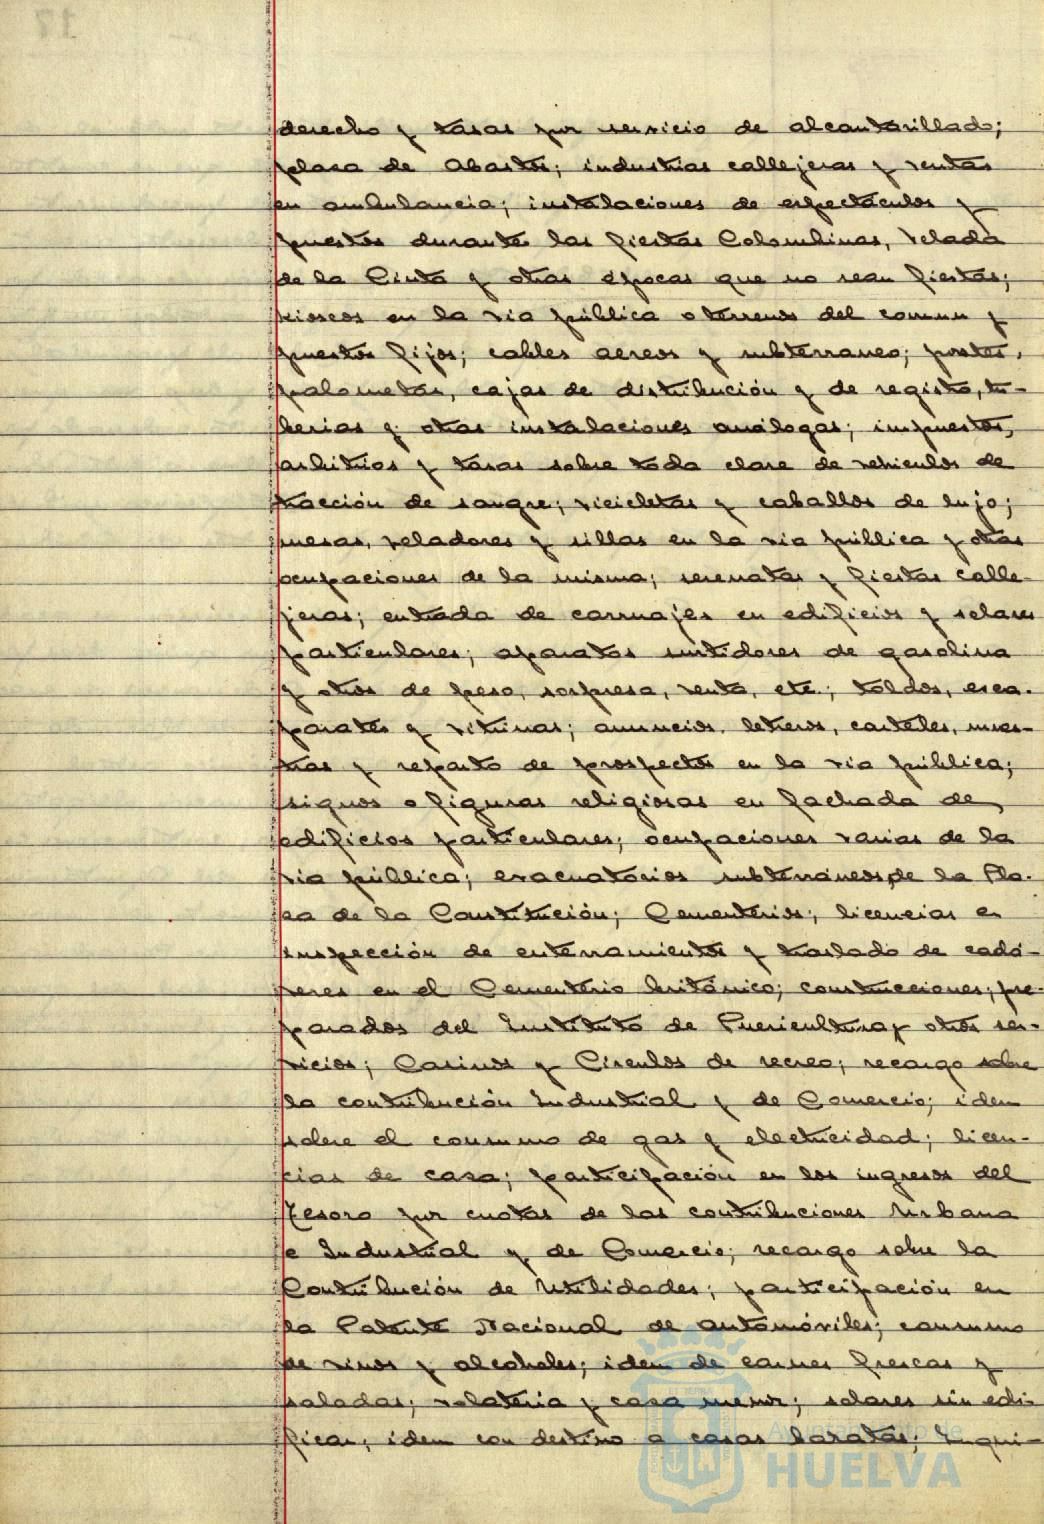 derecho y tasas por servicio de alcantarillado;
plaza de Abastos; industrias callejeras y ventas
en ambulancia; instalaciones de espectáculos y
puestos durante las fiestas Colombinas, Velada
de la Cinta y otras épocas que no sean fiestas;
kioscos en la via pública o terrenos del comun y
puestos fijos; cables aereos y subterraneo; postes,
palometas, cajas de distribución y de registro, tu-
berias y otras instalaciones análogas; impuestos,
arbitrios y tasas sobre toda clase de vehiculos de
tracción de sangre; vicicletas y caballos de lujo;
mesas, veladores y sillas en la via pública y otras
ocupaciones de la misma; serenatas y fiestas calle-
jeras; entrada de carruajes en edificios y solares
particulares; aparatos surtidores de gasolina
y otros de peso, sorpresa, venta, etc.; toldos, esca-
parates y vitrinas; anuncios, letreros, carteles, mues-
tras y reparto de prospectos en la via pública;
signos o figuras religiosas en fachada de
edificios particulares; ocupaciones varias de la
via pública; evacuatorios subterráneos de la Pla-
za de la Constitución; Cementerios; licencias e
inspección de enterramientos y traslado de cadá-
veres en el Cementerio británico; construcciones; pre-
parados del Instituto de Puericultura y otros ser-
vicios; Casinos y Circulos de recreo; recargo sobre
la contribución Industrial y de Comercio; idem
sobre el consumo de gas y electricidad; licen-
cias de caza; participación en los ingresos del
Tesoro por cuotas de las contribuciones Urbana
e Industrial y de Comercio; recargo sobre la
Contribución de Utilidades; participación en
la Patente Nacional de automóviles; consumo
de vinos y alcoholes; idem de carnes frescas y
saladas; volateria y caza menor; solares sin edi-
ficar; idem con destino a casas baratas; Inqui-
Ayuntamiento de
HUELVA
17